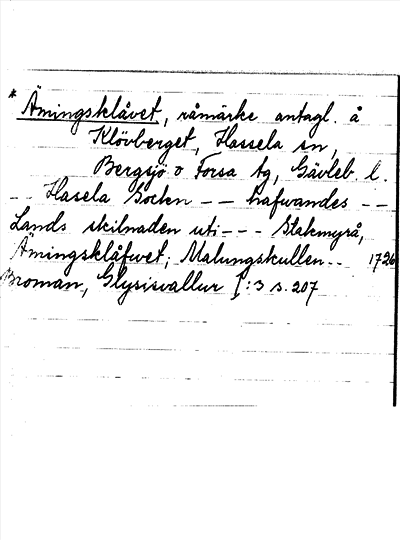 * Ämingsklåvet, råmärke antagl. å
Klövberget, Hassela sn,
Bergsjö o Forsa tg, Gävleb. l.
-- Hasela Socken -- hafwandes --
Lands skilnaden uti --- Stakmyrå,
Ämingsklåfwet, Malungskullen.. 1726
Broman, Glysisvallur I:3 s. 207